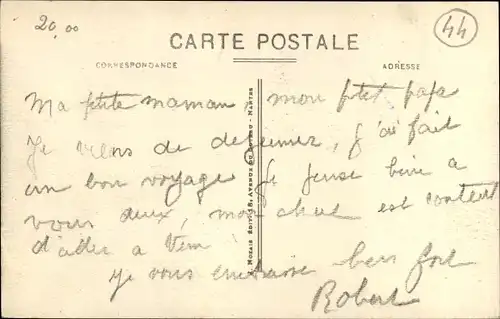 20,00
44
CARTE POSTALE
CORRESPONDANCE
ADRESSE
Ma ptite maman, mon ptit papa
Je viens de dejeuner, j'ai fait
un bon voyage Je pense bien a
vous deux, est content
d'aller a
Je vous embrasse bien fort
Robert